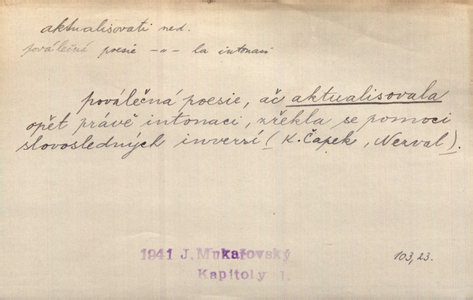 aktualisovati ned.
poválečná poesie -"- la intonaci
poválečná poesie, ač aktualisovala
opět právě intonaci, zřekla se pomoci
slovosledných inversí (K. Čapek, Nerval).
1941 J. Mukařovský
Kapitoly I.
103,23.